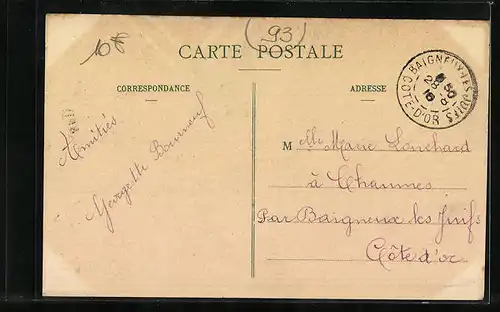 10f
(93)
CARTE POSTALE
CORRESPONDANCE
ADRESSE
BAIGNEUX-LES-JUIFS
COTE-D'OR
Amitiés
Georgette Bourneuf
M elle Marie Lonchard
à Chaumes
Par Baigneux les Juifs
Côte d'or